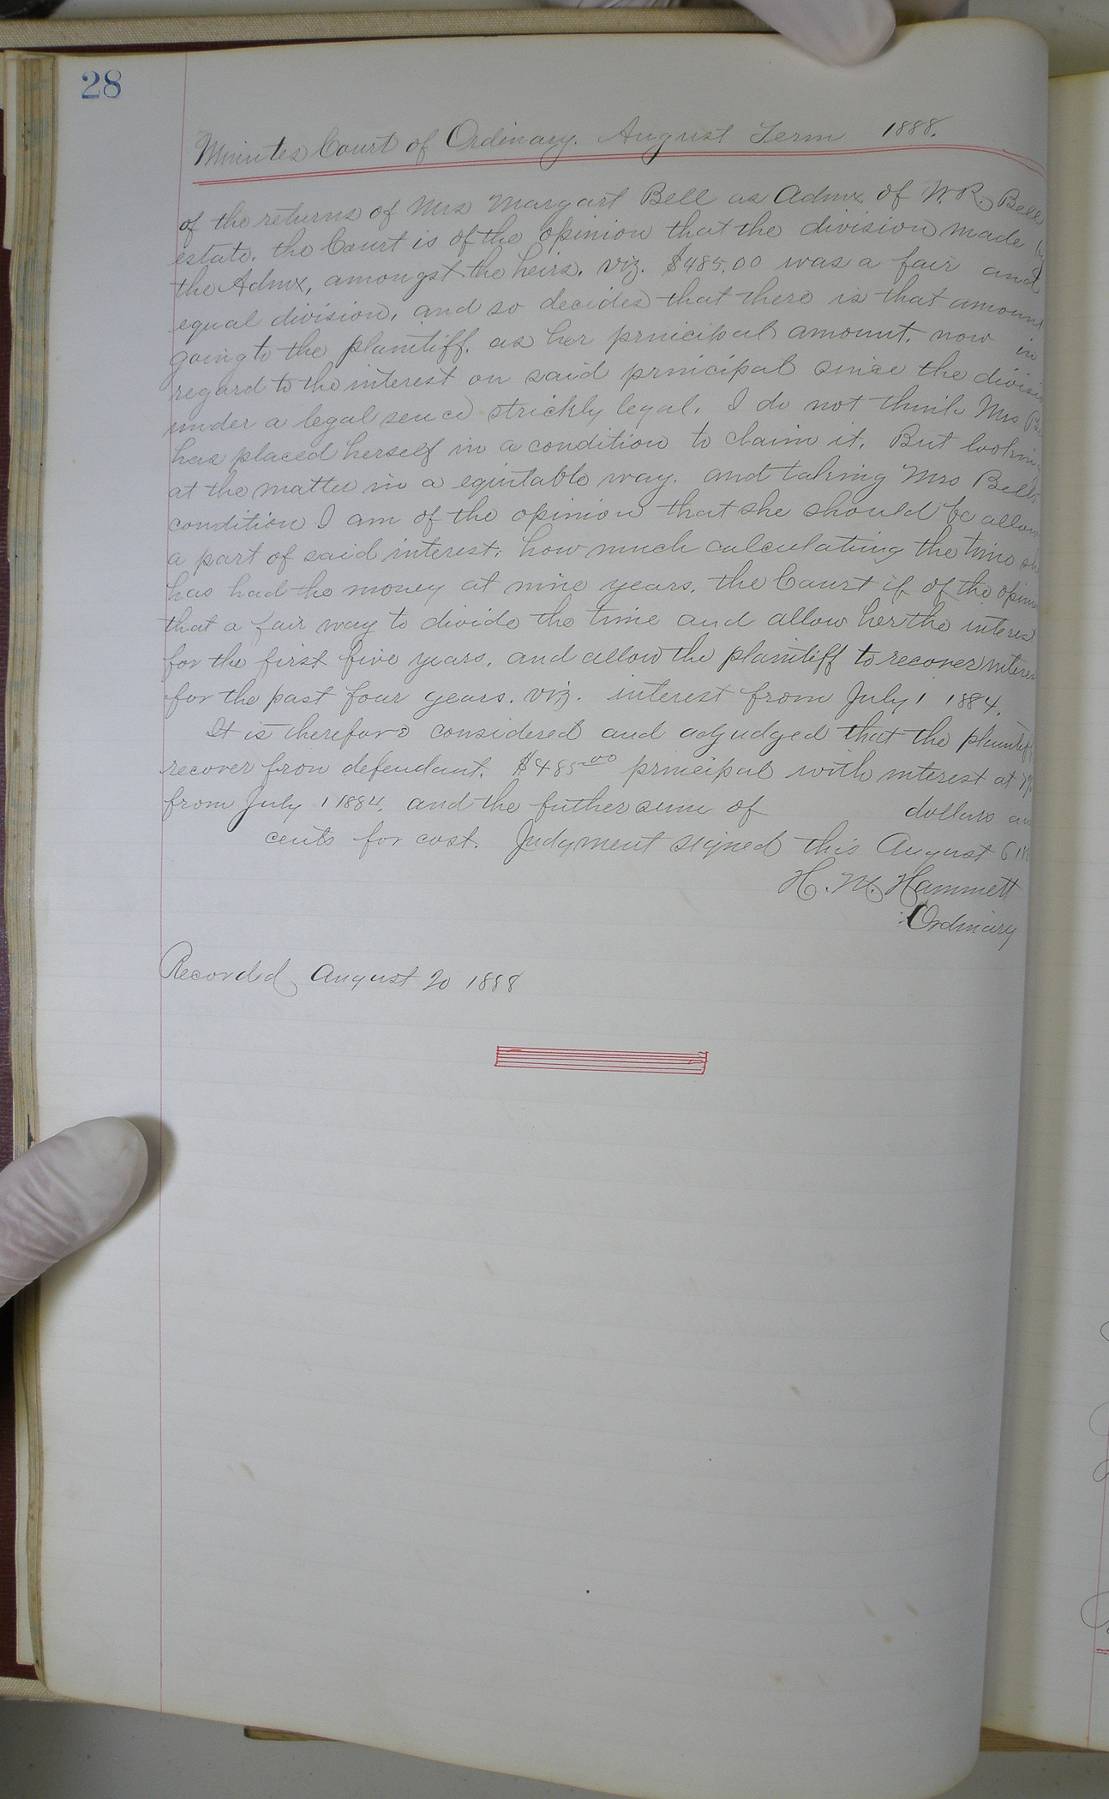 28
Minutes Court of Ordinary. August Term 1888.
of the returns of Mrs Margart Bell as Admx of W. R. Bell
estate. the Court is of the opinion that the division made
the Admx, amongst the heirs. viz. $485.00 was a fair and
equal division, and so decides that there is that amount
going to the plaintiff. as her principal amount. now in
regard to the interest on said principal since the
under a legal sence strickly legal. I do not think Mrs
has placed herself in a condition to claim it. But
at the matter in a equitable way. and taking Mrs Bells
condition I am of the opinion that she should be
a part of said interest. how much calculating the time
has had the money at nine years. the Court if of the
that a fair way to divide the time and allow her the
for the first five years. and allow the plaintiff to recover
for the past four years. viz. interest from July 1 1884.
It is therefore considered and adjudged that the
recover from defendant. $485.00 principal with interest at
from July 1 1884. and the futher sum of dollars
cents for cost. Judgment signed this August 6
H. M. Hammett
Ordinary
Recorded August 20 1888